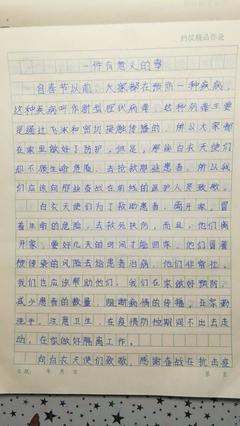 一件有意义的事
自春节以前，大家都在预防一种疾病，
这种疾病叫作新型冠状病毒，这种病毒主要
是通过飞沫和密切接触传播的，所以大家都
在家里做好了防护。但是，那些白衣天使们
却不顾生命危险，去抢救那些患者，所以我
们应该向那些奋战在前线的医护人员致敬。
白衣天使们为了救助患者，离开家，冒
着生命的危险，去救死扶伤，而且，他们离
开家，要好几天的时间才能回家，他们冒着
被传染的风险去给患者治病，他们非常壮，
我们也应该帮助他们，我们在家做好预防，
减少患者的数量，阻断病情的传播。在家勤
洗手，注意卫生，在疫情防控期间不出去走
动，在家做好隔离工作。
向白衣天使们致敬，感谢奋战在抗击疫
日期： 年 月 日
第 页